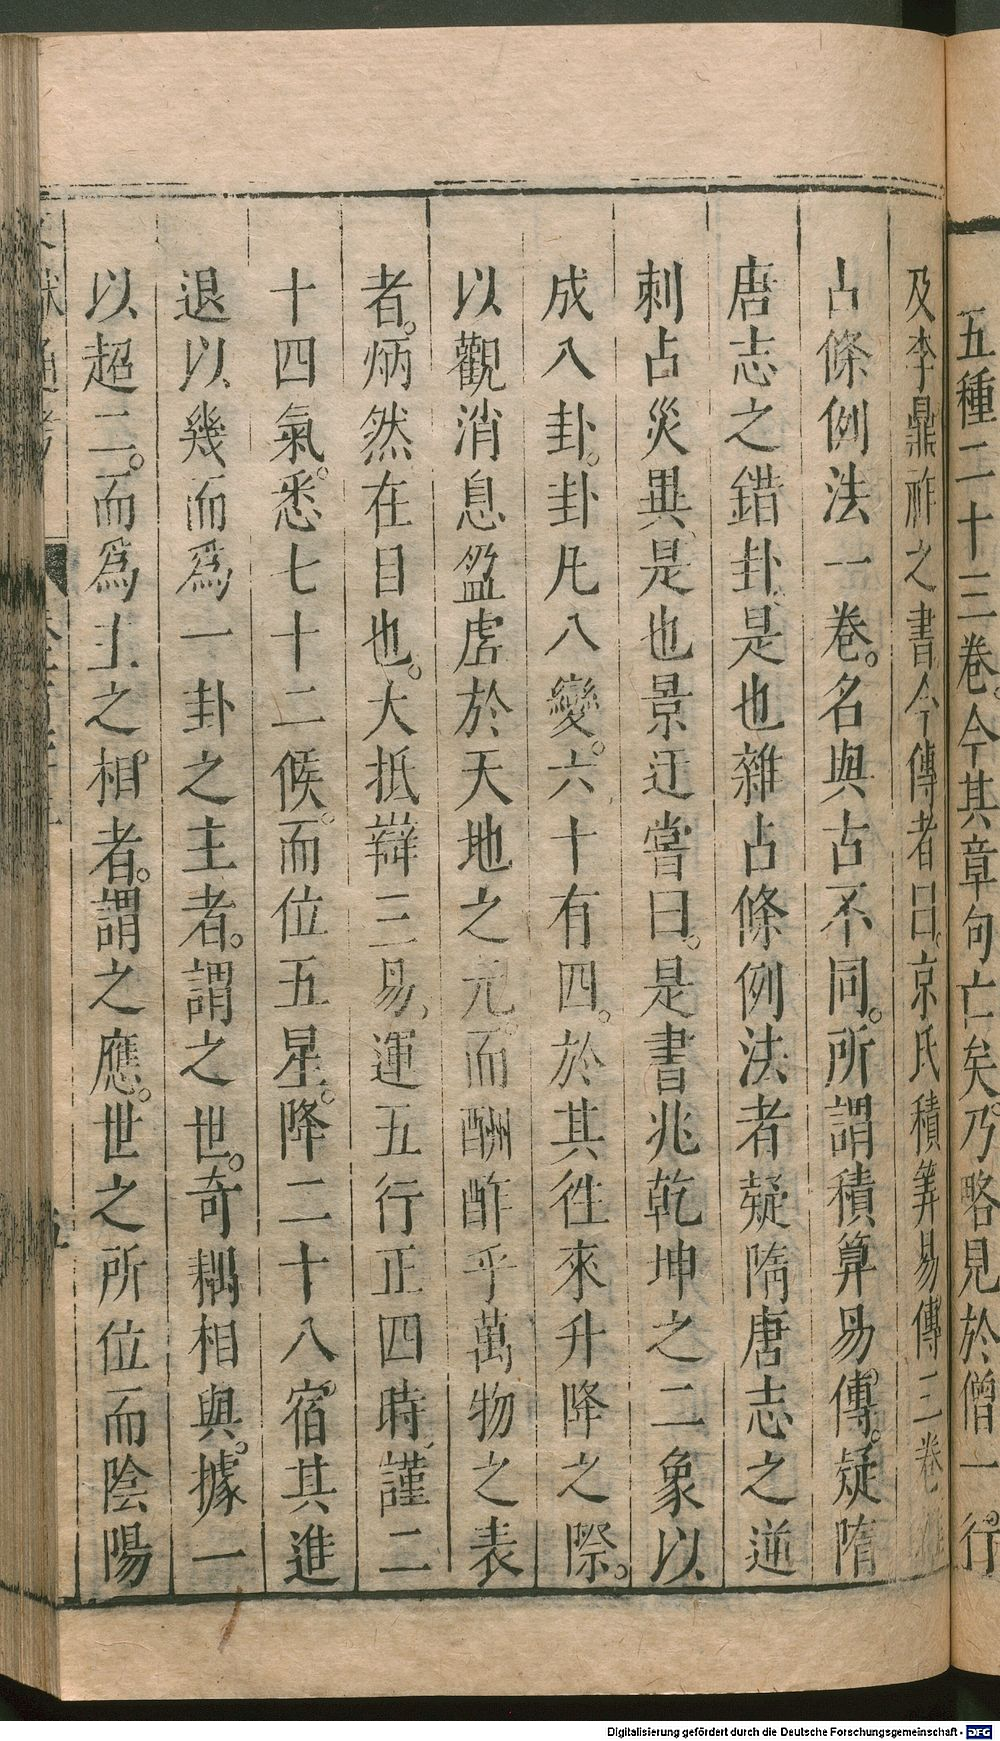 五種二十三卷今其章句亡矣乃略見於僧一行
及李鼎祚之書今傳者曰京氏積筭易傳三卷
占條例法一卷。名與古不同。所謂積算易傳。疑隋
唐志之錯卦是也雜占條例法者疑隋唐志之逆
刺占災異是也景迂嘗曰。是書兆乾坤之二象以
成八卦。卦凡八變。六十有四。於其徃來升降之際。
以觀消息盈虛於天地之元。而酬酢乎萬物之表
者。炳然在目也。大抵辯三易、運五行正四時、謹二
十四氣。悉七十二候。而位五星。降二十八宿。其進
退以幾而爲一卦之主者。謂之世。奇耦相與。據一
以超二。而爲主之相者。謂之應。世之所位而陰陽
Digitalisierung gefördert durch die Deutsche Forschungsgemeinschaft - DFG